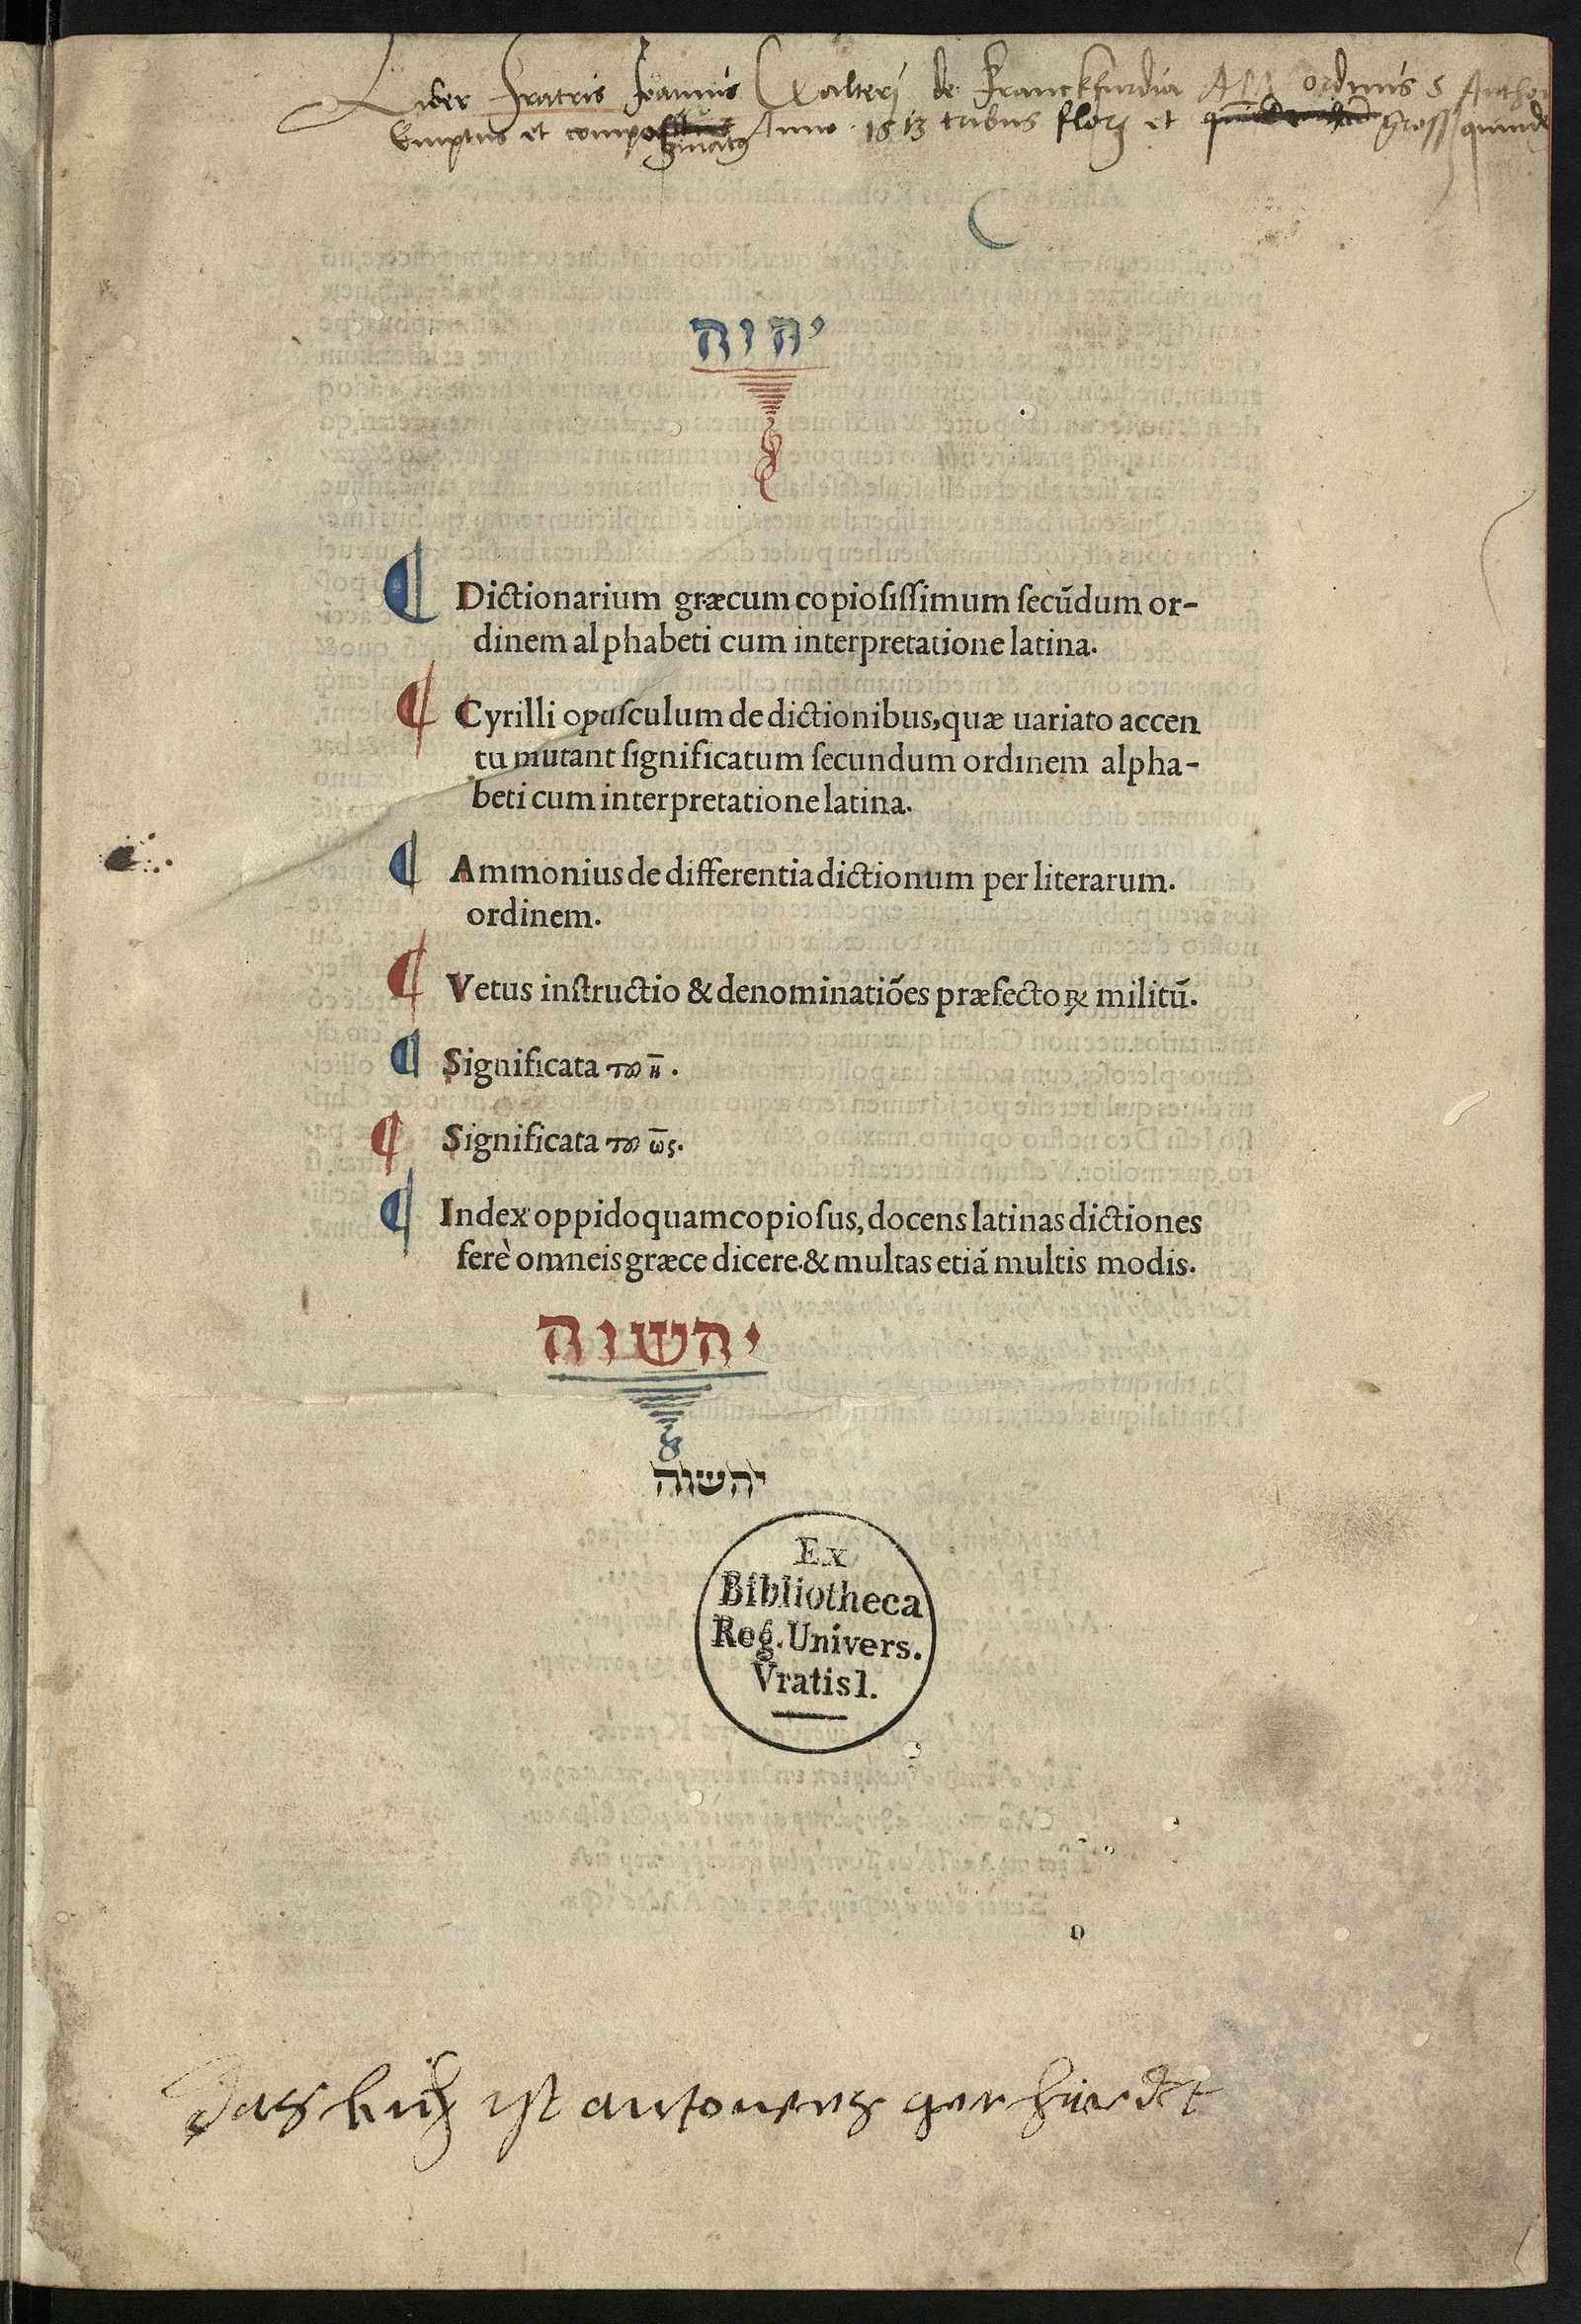 Liber fratris Joannis Walteri de Franckfurdia ordinis S Anthon
Emptus et Anno 1513 tribus flor et gross
יהוה
¶ Dictionarium græcum copiosissimum secūdum or-
dinem alphabeti cum interpretatione latina.
¶ Cyrilli opusculum de dictionibus, quæ uariato accen
tu mutant significatum secundum ordinem alpha-
beti cum interpretatione latina.
¶ Ammonius de differentia dictionum per literarum.
ordinem.
¶ Vetus instructio & denominatiões præfectoꝝ militū.
¶ Significata τοῦ η̄.
¶ Significata τοῦ ω̄ς.
¶ Index oppido quam copiosus, docens latinas dictiones
ferè omneis græce dicere. & multas etiā multis modis.
יהשוה
יהשוה
Ex
Bibliotheca
Reg. Univers.
Vratisl.
das buch ist